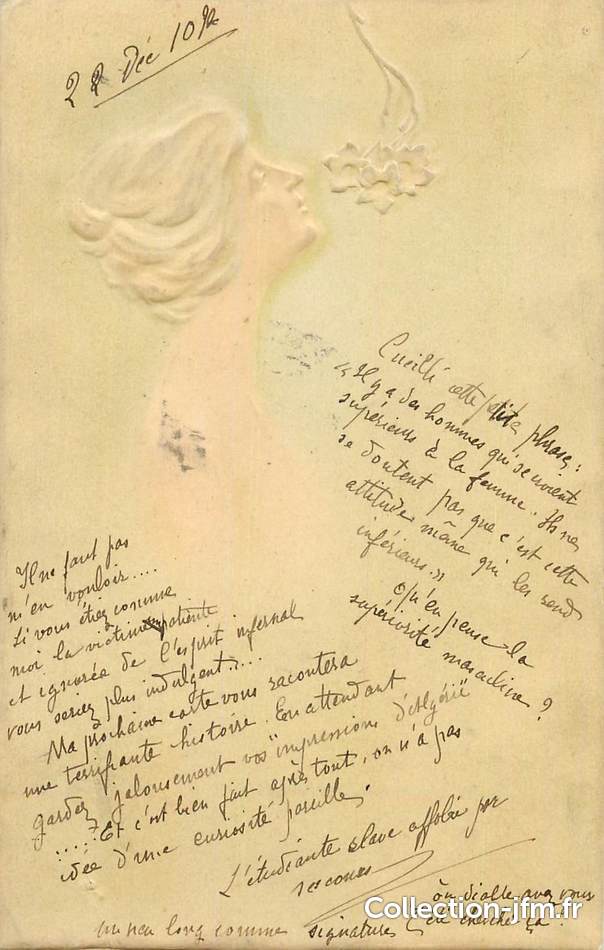 22 Déc 10
Cueilli cette petite phrase :
« Il y a des hommes qui se croient
supérieurs à la femme. Ils ne
se doutent pas que c'est cette
attitude même qui les rend
inférieurs. »
Qu'en pense la
supériorité masculine ?
Il ne faut pas
m'en vouloir....
Si vous étiez comme
moi la victime patiente
et ignorée de l'esprit infernal
vous seriez plus indulgent....
Ma prochaine carte vous racontera
une terrifiante histoire. En attendant
gardez jalousement vos "impressions d'Algérie"
..... Et c'est bien fait après tout, on n'a pas
idée d'une curiosité pareille.
L'étudiante slave affolée par
ses cours
un peu long comme signature
où diable avez vous
été cherché ça ?
Collection-jfm.fr